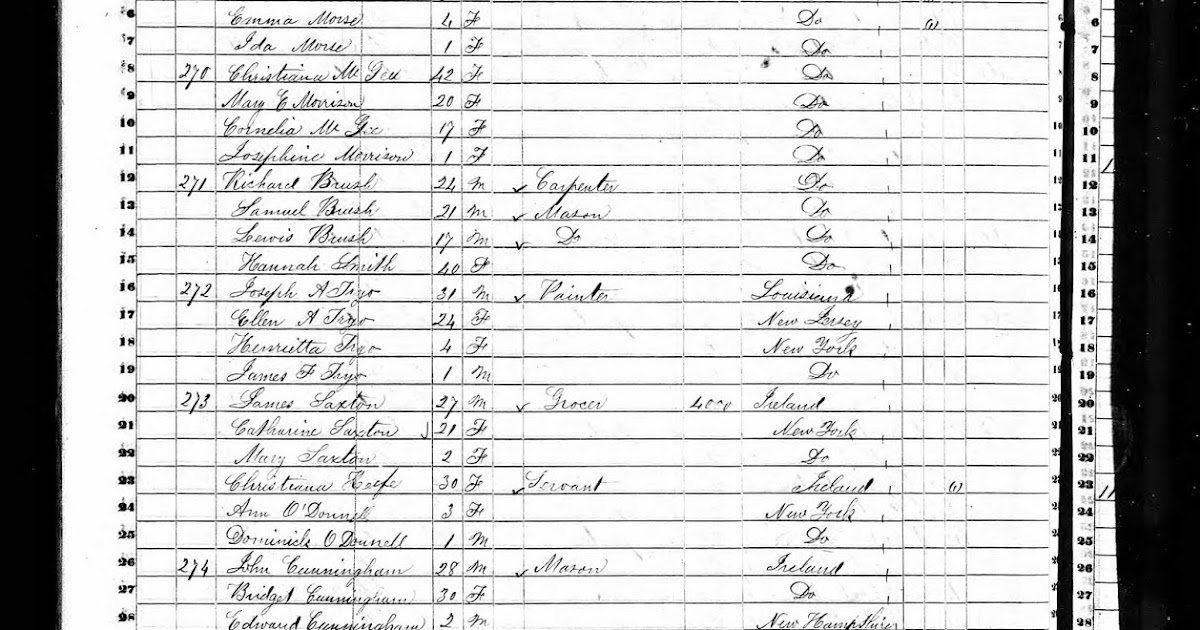 6 Emma Morse 4 F Do (1) 6
7 Ida Morse 1 F Do 7
8 270 Christiana Mc Gee 42 F Do 8
9 Mary E Morrison 20 F Do 9
10 Cornelia Mc Gee 17 F Do 10
11 Josephine Morrison 1 F Do 11
12 271 Richard Brush 24 M Carpenter Do 12
13 Samuel Brush 21 M Mason Do 13
14 Lewis Brush 17 M Do Do 14
15 Hannah Smith 40 F Do 15
16 272 Joseph A 31 M Painter Louisiana 16
17 Ellen A 24 F New Jersey 17
18 Henrietta 4 F New York 18
19 James F 1 M Do 19
20 273 James Saxton 27 M Grocer 4000 Ireland 20
21 Catharine Saxton 21 F New York 21
22 Mary Saxton 2 F Do 22
23 Christiana Keefe 30 F Servant Ireland (1) 23 11
24 Ann O'Donnell 3 F New York 24
25 Dominick O Donnell 1 M Do 25
26 274 John Cunningham 28 M Mason Ireland 26
27 Bridget Cunningham 30 F Do 27
28 Edward Cunningham 2 M New Hampshire 28